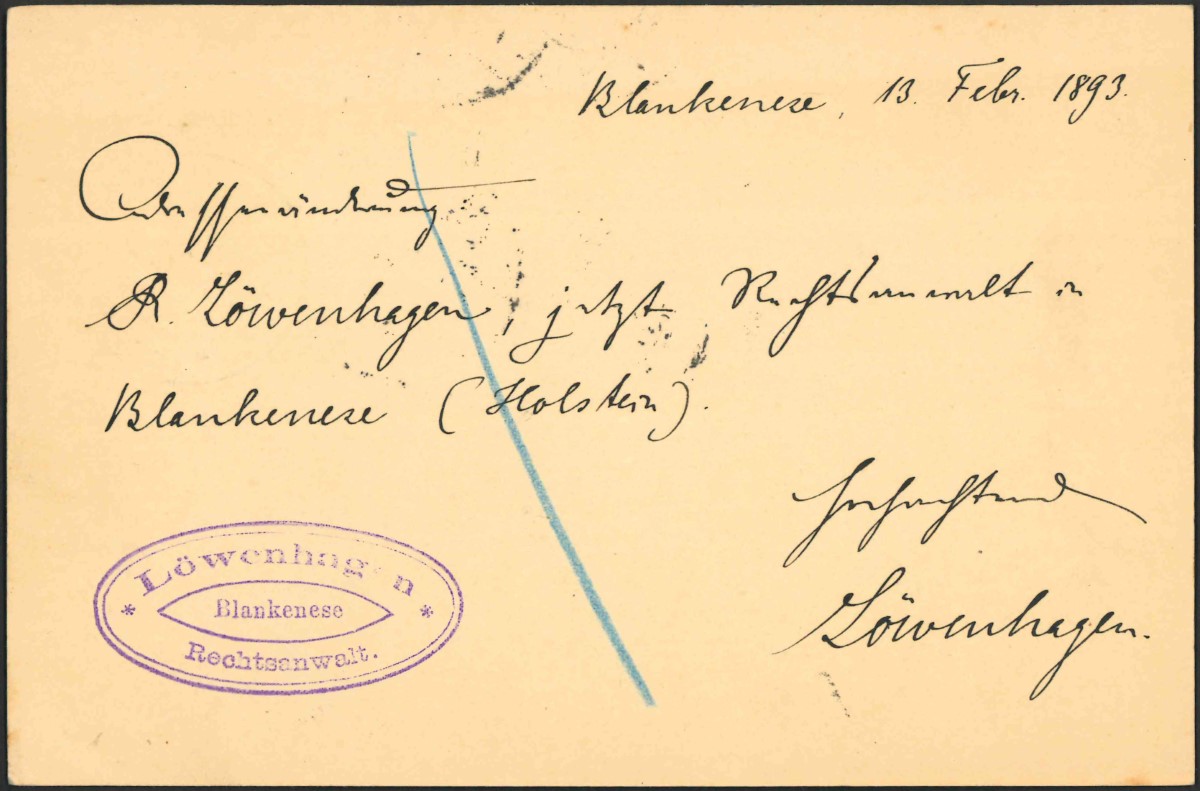 Blankenese, 13. Febr. 1893.
Adressenänderung
R. Löwenhagen, jetzt Rechtsanwalt in
Blankenese (Holstein).
Hochachtend
Löwenhagen.
Löwenhagen
* Blankenese *
Rechtsanwalt.